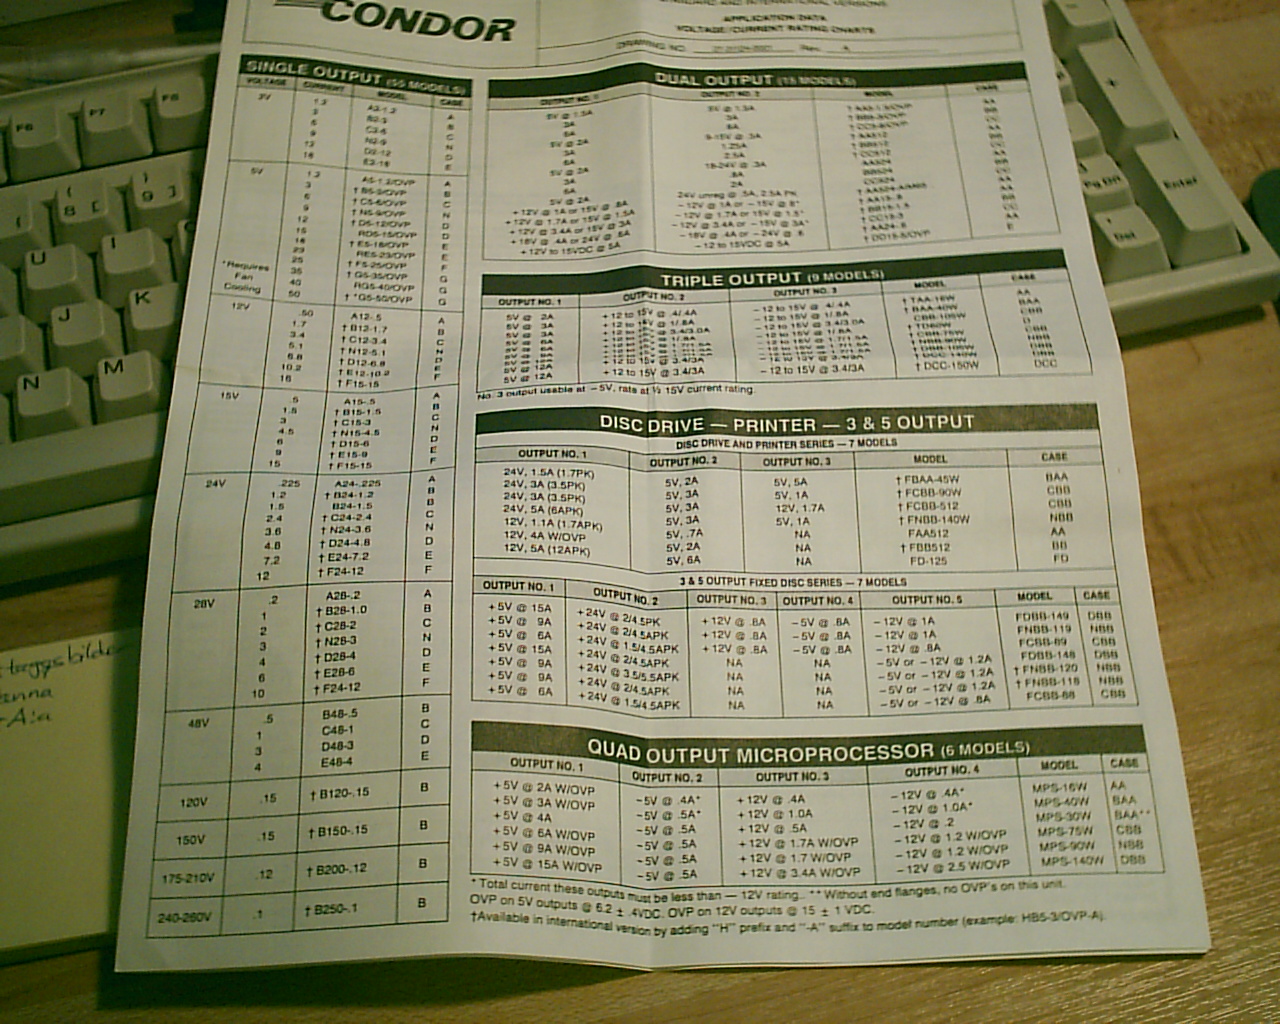 CONDOR
STANDARD AND INTERNATIONAL VERSIONS
APPLICATION DATA
VOLTAGE/CURRENT RATING CHARTS
DRAWING NO. Rev. A
SINGLE OUTPUT (55 MODELS)
VOLTAGE CURRENT MODEL CASE
2V 1.2 A
3 B2-3 B
6 C2-6 C
9 N2-9 N
12 D2-12 D
18 E2-18 E
5V 1.2 A5-1.2/OVP A
3 † B5-3/OVP B
6 † C5-6/OVP C
9 † N5-9/OVP N
12 † D5-12/OVP D
15 RD5-15/OVP D
18 † E5-18/OVP E
23 RE5-23/OVP E
25 † F5-25/OVP F
*Requires Fan Cooling
35 † G5-35/OVP G
40 RG5-40/OVP G
50 † *G5-50/OVP G
12V .50 A12-.5 A
1.7 † B12-1.7 B
3.4 † C12-3.4 C
5.1 † N12-5.1 N
6.8 † D12-6.8 D
10.2 † E12-10.2 E
16 † F15-15 F
15V .5 A15-.5 A
1.5 † B15-1.5 B
3 † C15-3 C
4.5 † N15-4.5 N
6 † D15-6 D
9 † E15-9 E
15 † F15-15 F
24V .225 A24-.225 A
1.2 † B24-1.2 B
1.5 B24-1.5 B
2.4 † C24-2.4 C
3.6 † N24-3.6 N
4.8 † D24-4.8 D
7.2 † E24-7.2 E
12 † F24-12 F
28V .2 A28-.2 A
1 † B28-1.0 B
2 † C28-2 C
3 † N28-3 N
4 † D28-4 D
6 † E28-6 E
10 † F24-12 F
48V .5 B48-.5 B
1 C48-1 C
3 D48-3 D
4 E48-4 E
120V .15 † B120-.15 B
150V .15 † B150-.15 B
175-210V .12 † B200-.12 B
240-260V .1 † B250-.1 B
DUAL OUTPUT (15 MODELS)
OUTPUT NO. 1 OUTPUT NO. 2 MODEL CASE
5V @ 1.5A 5V @ 1.5A AA
3A 3A BB
6A 6A CC
5V @ 2A 9-15V @ .5A AA
3A 1.25A † BB512 BB
6A 2.5A † CC512 CC
5V @ 2A 18-24V @ .3A AA524 AA
3A .8A BB524 BB
6A 2A CC524 CC
5V @ 2A 24V unreg @ .5A, 2.5A PK AA
+ 12V @ 1A or 15V @ .8A − 12V @ 1A or − 15V @ .8* AA
+ 12V @ 1.7A or 15V @ 1.5A − 12V @ 1.7A or − 15V @ 1.5* BB
+ 12V @ 3.4A or 15V @ 3A − 12V @ 3.4A or − 15V @ 3A* † CC15-3 CC
+ 18V @ .4A or 24V @ .6 − 18V @ .4A or − 24V @ .6 AA
+ 12 to 15VDC @ 5A − 12 to 15VDC @ 5A E
TRIPLE OUTPUT (9 MODELS)
OUTPUT NO. 1 OUTPUT NO. 2 OUTPUT NO. 3 MODEL CASE
5V @ 2A + 12 to 15V @ .4/.4A − 12 to 15V @ .4/.4A † TAA-16W AA
5V @ 3A + 12 to 15V @ 1/.8A − 12 to 15V @ 1/.8A † BAA-40W BAA
5V @ 3A − 12 to 15V @ 3.4/3.0A CBB
5V @ 6A † TD60W D
5V @ 6A CBB-75W CBB
5V @ 9A NBB-90W NBB
DBB
5V @ 12A † DCC-140W
5V @ 12A + 12 to 15V @ 3.4/3A − 12 to 15V @ 3.4/3A † DCC-150W DCC
No. 3 output usable at −5V, rate at ½ 15V current rating.
DISC DRIVE — PRINTER — 3 & 5 OUTPUT
DISC DRIVE AND PRINTER SERIES — 7 MODELS
OUTPUT NO. 1 OUTPUT NO. 2 OUTPUT NO. 3 MODEL CASE
24V, 1.5A (1.7PK) 5V, 2A 5V, 5A † FBAA-45W BAA
24V, 3A (3.5PK) 5V, 3A 5V, 1A † FCBB-90W CBB
24V, 3A (3.5PK) 5V, 3A 12V, 1.7A † FCBB-512 CBB
24V, 5A (6APK) 5V, 3A 5V, 1A † FNBB-140W NBB
12V, 1.1A (1.7APK) 5V, .7A NA FAA512 AA
12V, 4A W/OVP 5V, 2A NA † FBB512 BB
12V, 5A (12APK) 5V, 6A NA FD-125 FD
3 & 5 OUTPUT FIXED DISC SERIES — 7 MODELS
OUTPUT NO. 1 OUTPUT NO. 2 OUTPUT NO. 3 OUTPUT NO. 4 OUTPUT NO. 5 MODEL CASE
+ 5V @ 15A + 24V @ 2/4.5PK + 12V @ .8A − 5V @ .8A − 12V @ 1A FDBB-149 DBB
+ 5V @ 9A + 24V @ 2/4.5APK + 12V @ .8A − 5V @ .8A − 12V @ 1A FNBB-119 NBB
+ 5V @ 6A + 24V @ 1.5/4.5APK + 12V @ .8A − 5V @ .8A − 12V @ .8A FCBB-89 CBB
+ 5V @ 15A + 24V @ 2/4.5APK NA NA − 5V or − 12V @ 1.2A FDBB-148 DBB
+ 5V @ 9A + 24V @ 3.5/5.5APK NA NA − 5V or − 12V @ 1.2A † FNBB-120 NBB
+ 5V @ 9A + 24V @ 2/4.5APK NA NA − 5V or − 12V @ 1.2A † FNBB-118 NBB
+ 5V @ 6A + 24V @ 1.5/4.5APK NA NA − 5V or − 12V @ .8A FCBB-88 CBB
QUAD OUTPUT MICROPROCESSOR (6 MODELS)
OUTPUT NO. 1 OUTPUT NO. 2 OUTPUT NO. 3 OUTPUT NO. 4 MODEL CASE
+ 5V @ 2A W/OVP −5V @ .4A* + 12V @ .4A − 12V @ .4A* MPS-16W AA
+ 5V @ 3A W/OVP −5V @ .5A* + 12V @ 1.0A − 12V @ 1.0A* MPS-40W BAA
+ 5V @ 4A −5V @ .5A + 12V @ .5A − 12V @ .2 MPS-30W BAA**
+ 5V @ 6A W/OVP −5V @ .5A + 12V @ 1.7A W/OVP − 12V @ 1.2 W/OVP MPS-75W CBB
+ 5V @ 9A W/OVP −5V @ .5A + 12V @ 1.7 W/OVP − 12V @ 1.2 W/OVP MPS-90W NBB
+ 5V @ 15A W/OVP −5V @ .5A + 12V @ 3.4A W/OVP − 12V @ 2.5 W/OVP MPS-140W DBB
* Total current these outputs must be less than — 12V rating. ** Without end flanges, no OVP's on this unit.
OVP on 5V outputs @ 6.2 ± .4VDC. OVP on 12V outputs @ 15 ± 1 VDC.
†Available in international version by adding "H" prefix and "-A" suffix to model number (example: HB5-3/OVP-A).
F6 F7 F8
8 9
U I
J K
N M
Pg Dn
Enter
Del